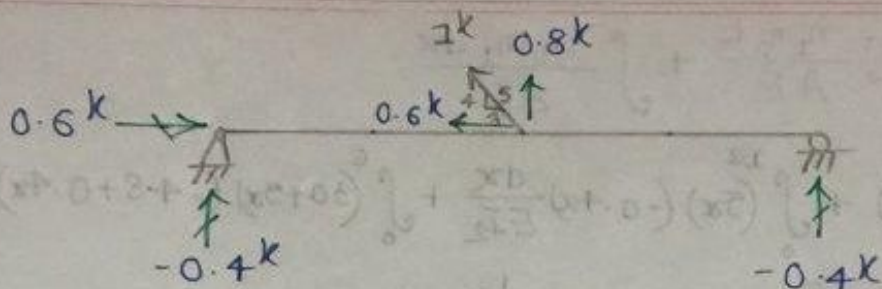 1k 0.8k
0.6k 0.6k 4 5 3
-0.4k -0.4k